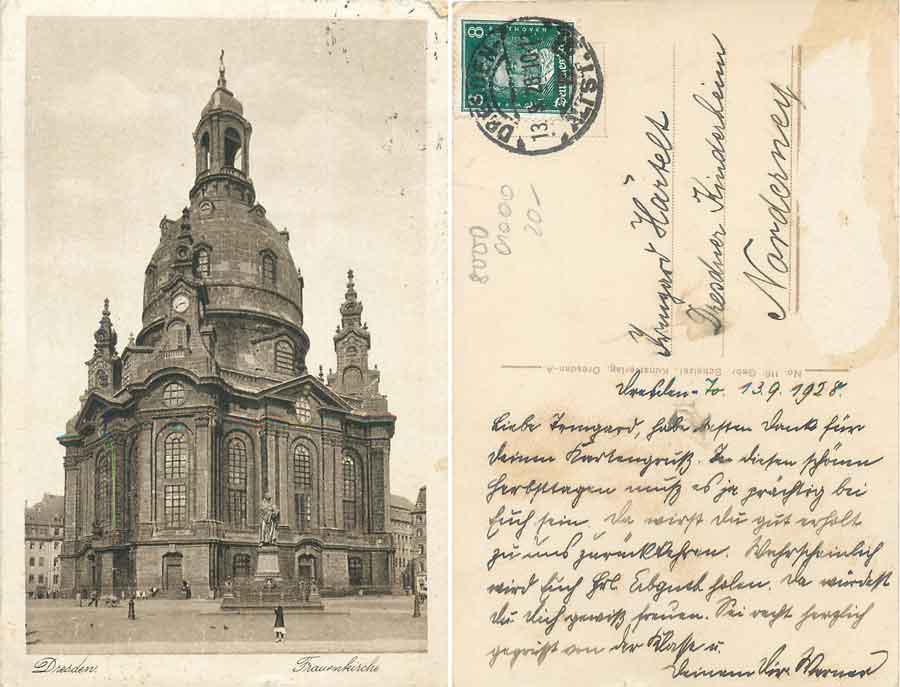 Dresden.
Frauenkirche
8
8
Deutsches
13.9.28.10
8000
20-
Irmgard Härtelt
Dresdner Kinderheim
Norderney
No. 116 Gebr. Scheizel, Kunstverlag, Dresden-A
Dresden-N. 13.9.1928.
Liebe Irmgard, hab besten Dank für
Deinen Kartengruß. In diesen schönen
Herbsttagen muß es ja prächtig bei
Euch sein. Da wirst Du gut erholt
zu uns zurückkehren. Wahrscheinlich
wird Euch Frl. holen. Da würdest
Du Dich gewiß freuen. Sei recht herzlich
gegrüßt von der Klasse u.
Deinem Dir. Werner